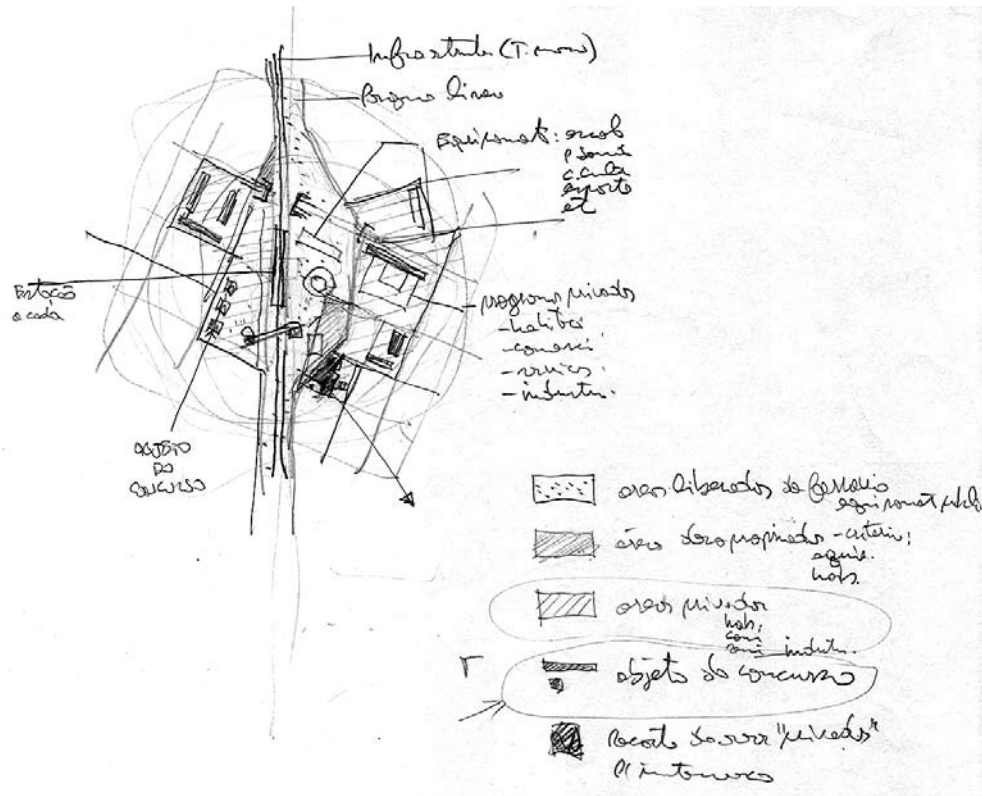 Infraestrutu (T. move)
Parque linear
Equipament: escol
p. saud
c. cultu
esporte
et
Estação
a cada
programas privados
- habitac
- comerci
- serviços.
- industri.
objeto
do
concurso
areas liberadas da ferrovia
equipament public
áreas desapropriadas - criterio:
equip.
habs.
areas privadas
hab;
com
serv industr.
objeto do concurso
Recorte de area "privadas"
p/